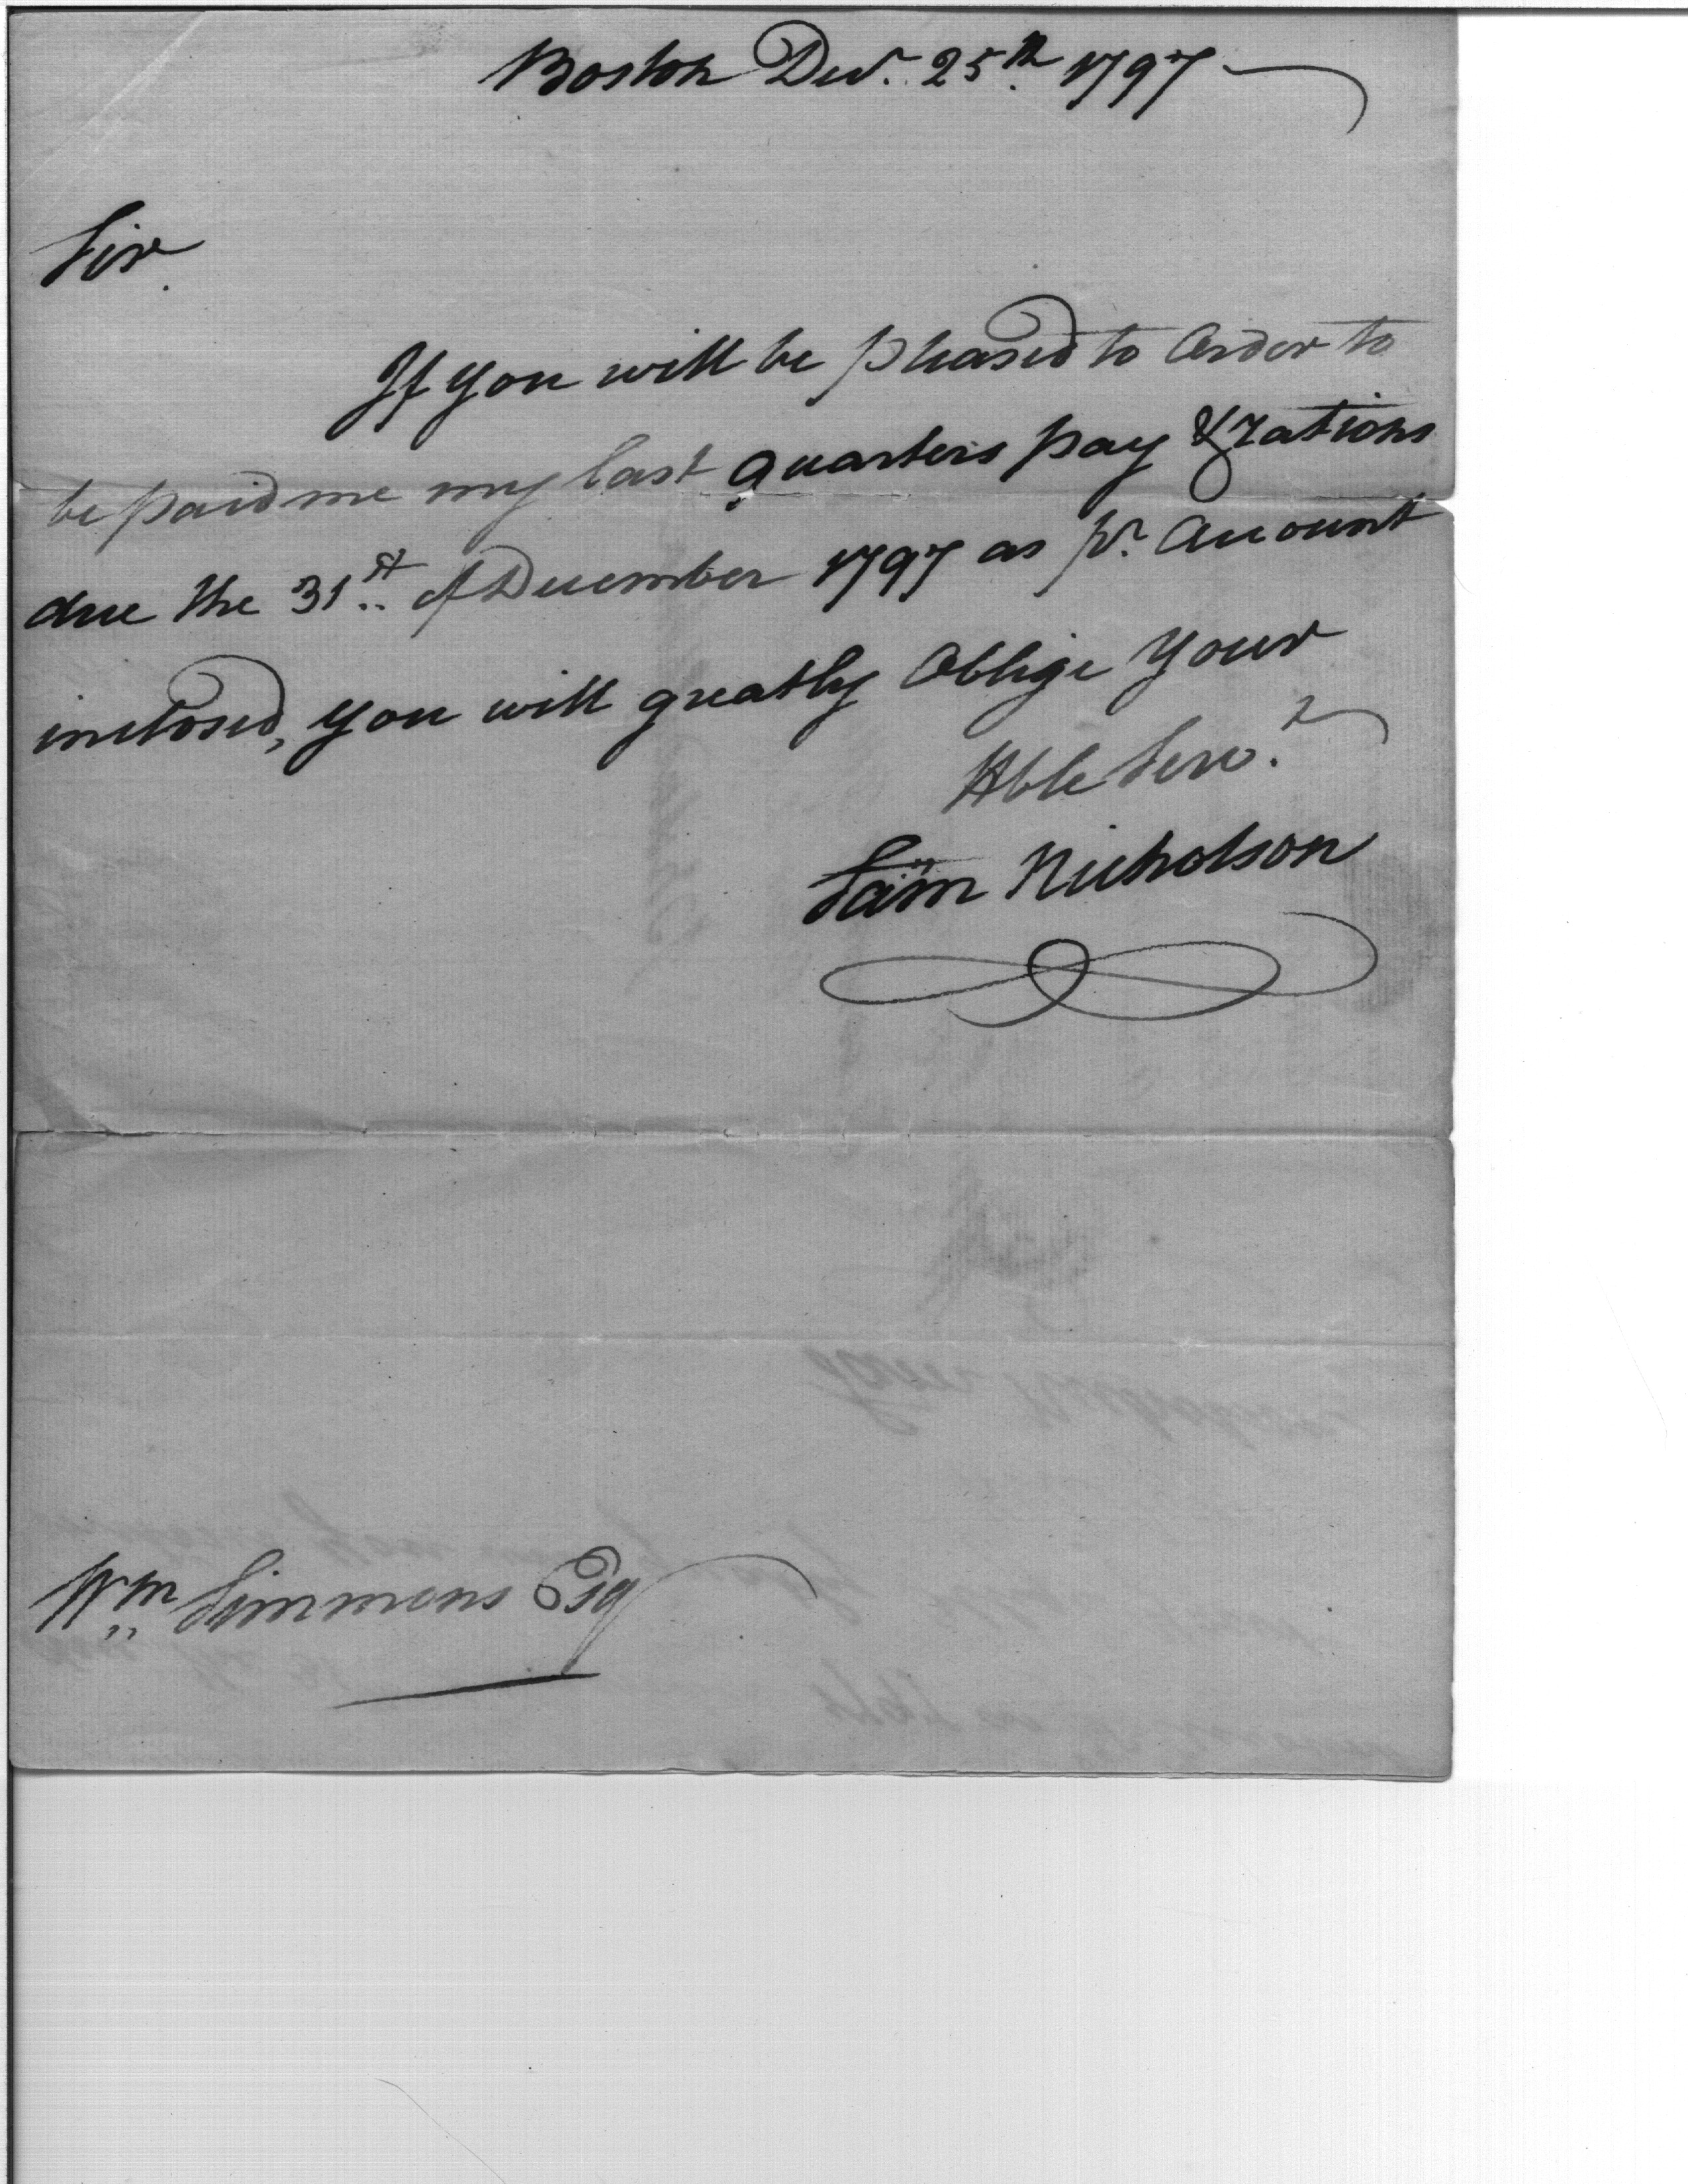 Boston Dec.r 25th 1797
Sir.
If you will be pleased to Order to
be paid me my last quarters pay & rations
due the 31st of December 1797 as pr. Account
inclosed, you will greatly Oblige Your
Hble Servt
Sam Nicholson
Wm Simmons Esq